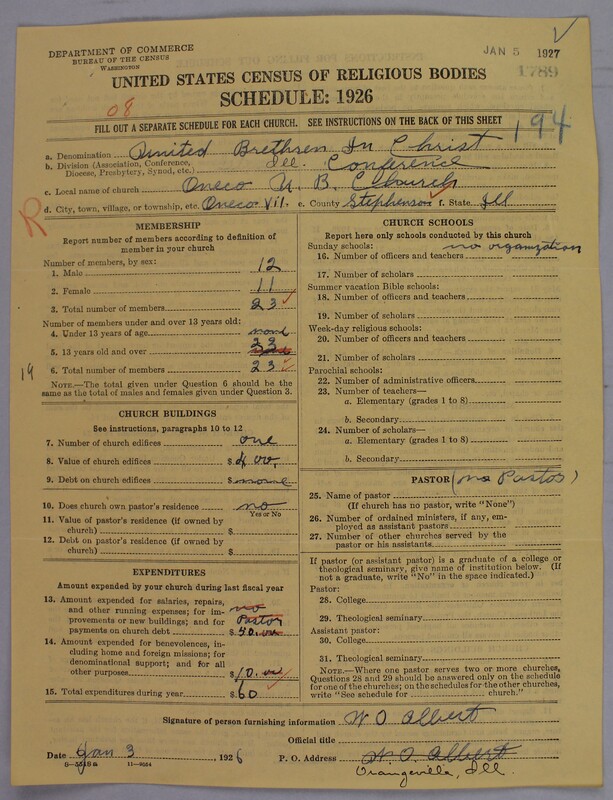 DEPARTMENT OF COMMERCE
BUREAU OF THE CENSUS
WASHINGTON
JAN 5 1927
1789
UNITED STATES CENSUS OF RELIGIOUS BODIES
SCHEDULE: 1926
08
194
FILL OUT A SEPARATE SCHEDULE FOR EACH CHURCH. SEE INSTRUCTIONS ON THE BACK OF THIS SHEET
a. Denomination United Brethren In Christ
b. Division (Association, Conference, Diocese, Presbytery, Synod, etc.) Ill. Conference
c. Local name of church Oneco U. B. Church
d. City, town, village, or township, etc. Oneco Vil. e. County Stephenson f. State Ill
R
MEMBERSHIP
Report number of members according to definition of
member in your church
Number of members, by sex:
1. Male 12
2. Female 11
3. Total number of members 23
Number of members under and over 13 years old:
4. Under 13 years of age none
5. 13 years old and over 23
6. Total number of members 23
19
NOTE.—The total given under Question 6 should be the
same as the total of males and females given under Question 3.
CHURCH BUILDINGS
See instructions, paragraphs 10 to 12
7. Number of church edifices one
8. Value of church edifices $ 400.
9. Debt on church edifices $ none
10. Does church own pastor's residence no
Yes or No
11. Value of pastor's residence (if owned by
church) $
12. Debt on pastor's residence (if owned by
church) $
EXPENDITURES
Amount expended by your church during last fiscal year
13. Amount expended for salaries, repairs,
and other running expenses; for im-
provements or new buildings; and for
payments on church debt no Pastor $ 50.00
14. Amount expended for benevolences,
including home and foreign missions; for
denominational support; and for all
other purposes 10.00
15. Total expenditures during year $ 60
CHURCH SCHOOLS
Report here only schools conducted by this church
Sunday schools: no organization
16. Number of officers and teachers
17. Number of scholars
Summer vacation Bible schools:
18. Number of officers and teachers
19. Number of scholars
Week-day religious schools:
20. Number of officers and teachers
21. Number of scholars
Parochial schools:
22. Number of administrative officers
23. Number of teachers—
a. Elementary (grades 1 to 8)
b. Secondary
24. Number of scholars—
a. Elementary (grades 1 to 8)
b. Secondary
PASTOR (no Pastor)
25. Name of pastor
(If church has no pastor, write "None")
26. Number of ordained ministers, if any, em-
ployed as assistant pastors
27. Number of other churches served by the
pastor or his assistants
If pastor (or assistant pastor) is a graduate of a college or
theological seminary, give name of institution below. (If
not a graduate, write "No" in the space indicated.)
Pastor:
28. College
29. Theological seminary
Assistant pastor:
30. College
31. Theological seminary
NOTE.—Where one pastor serves two or more churches,
Questions 28 and 29 should be answered only on the schedule
for one of the churches; on the schedules for the other churches,
write "See schedule for church."
Signature of person furnishing information W O Albert
Official title
Date Jan 3 1926 P. O. Address W. O. Albert
8—5518a 11—9584
Orangeville, Ill.